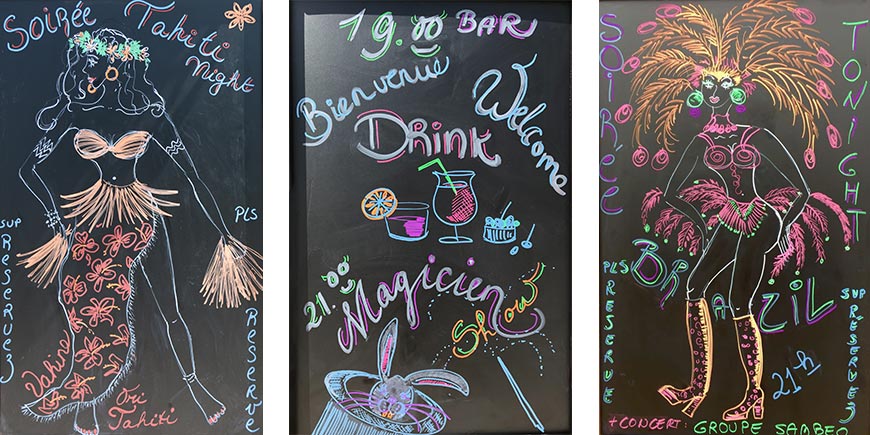 Soirée Tahiti
Night
SUP
RESERVEZ
PLS
RESERVE
Vahine
Ori
Tahiti
19.00 BAR
Bienvenue
Welcome
DRINK
21.00
Magicien
Show
SOIRÉE
TONIGHT
BRAZIL
PLS
RESERVE
SUP
RESERVEZ
21-h
+CONCERT: GROUPE SAMBEO